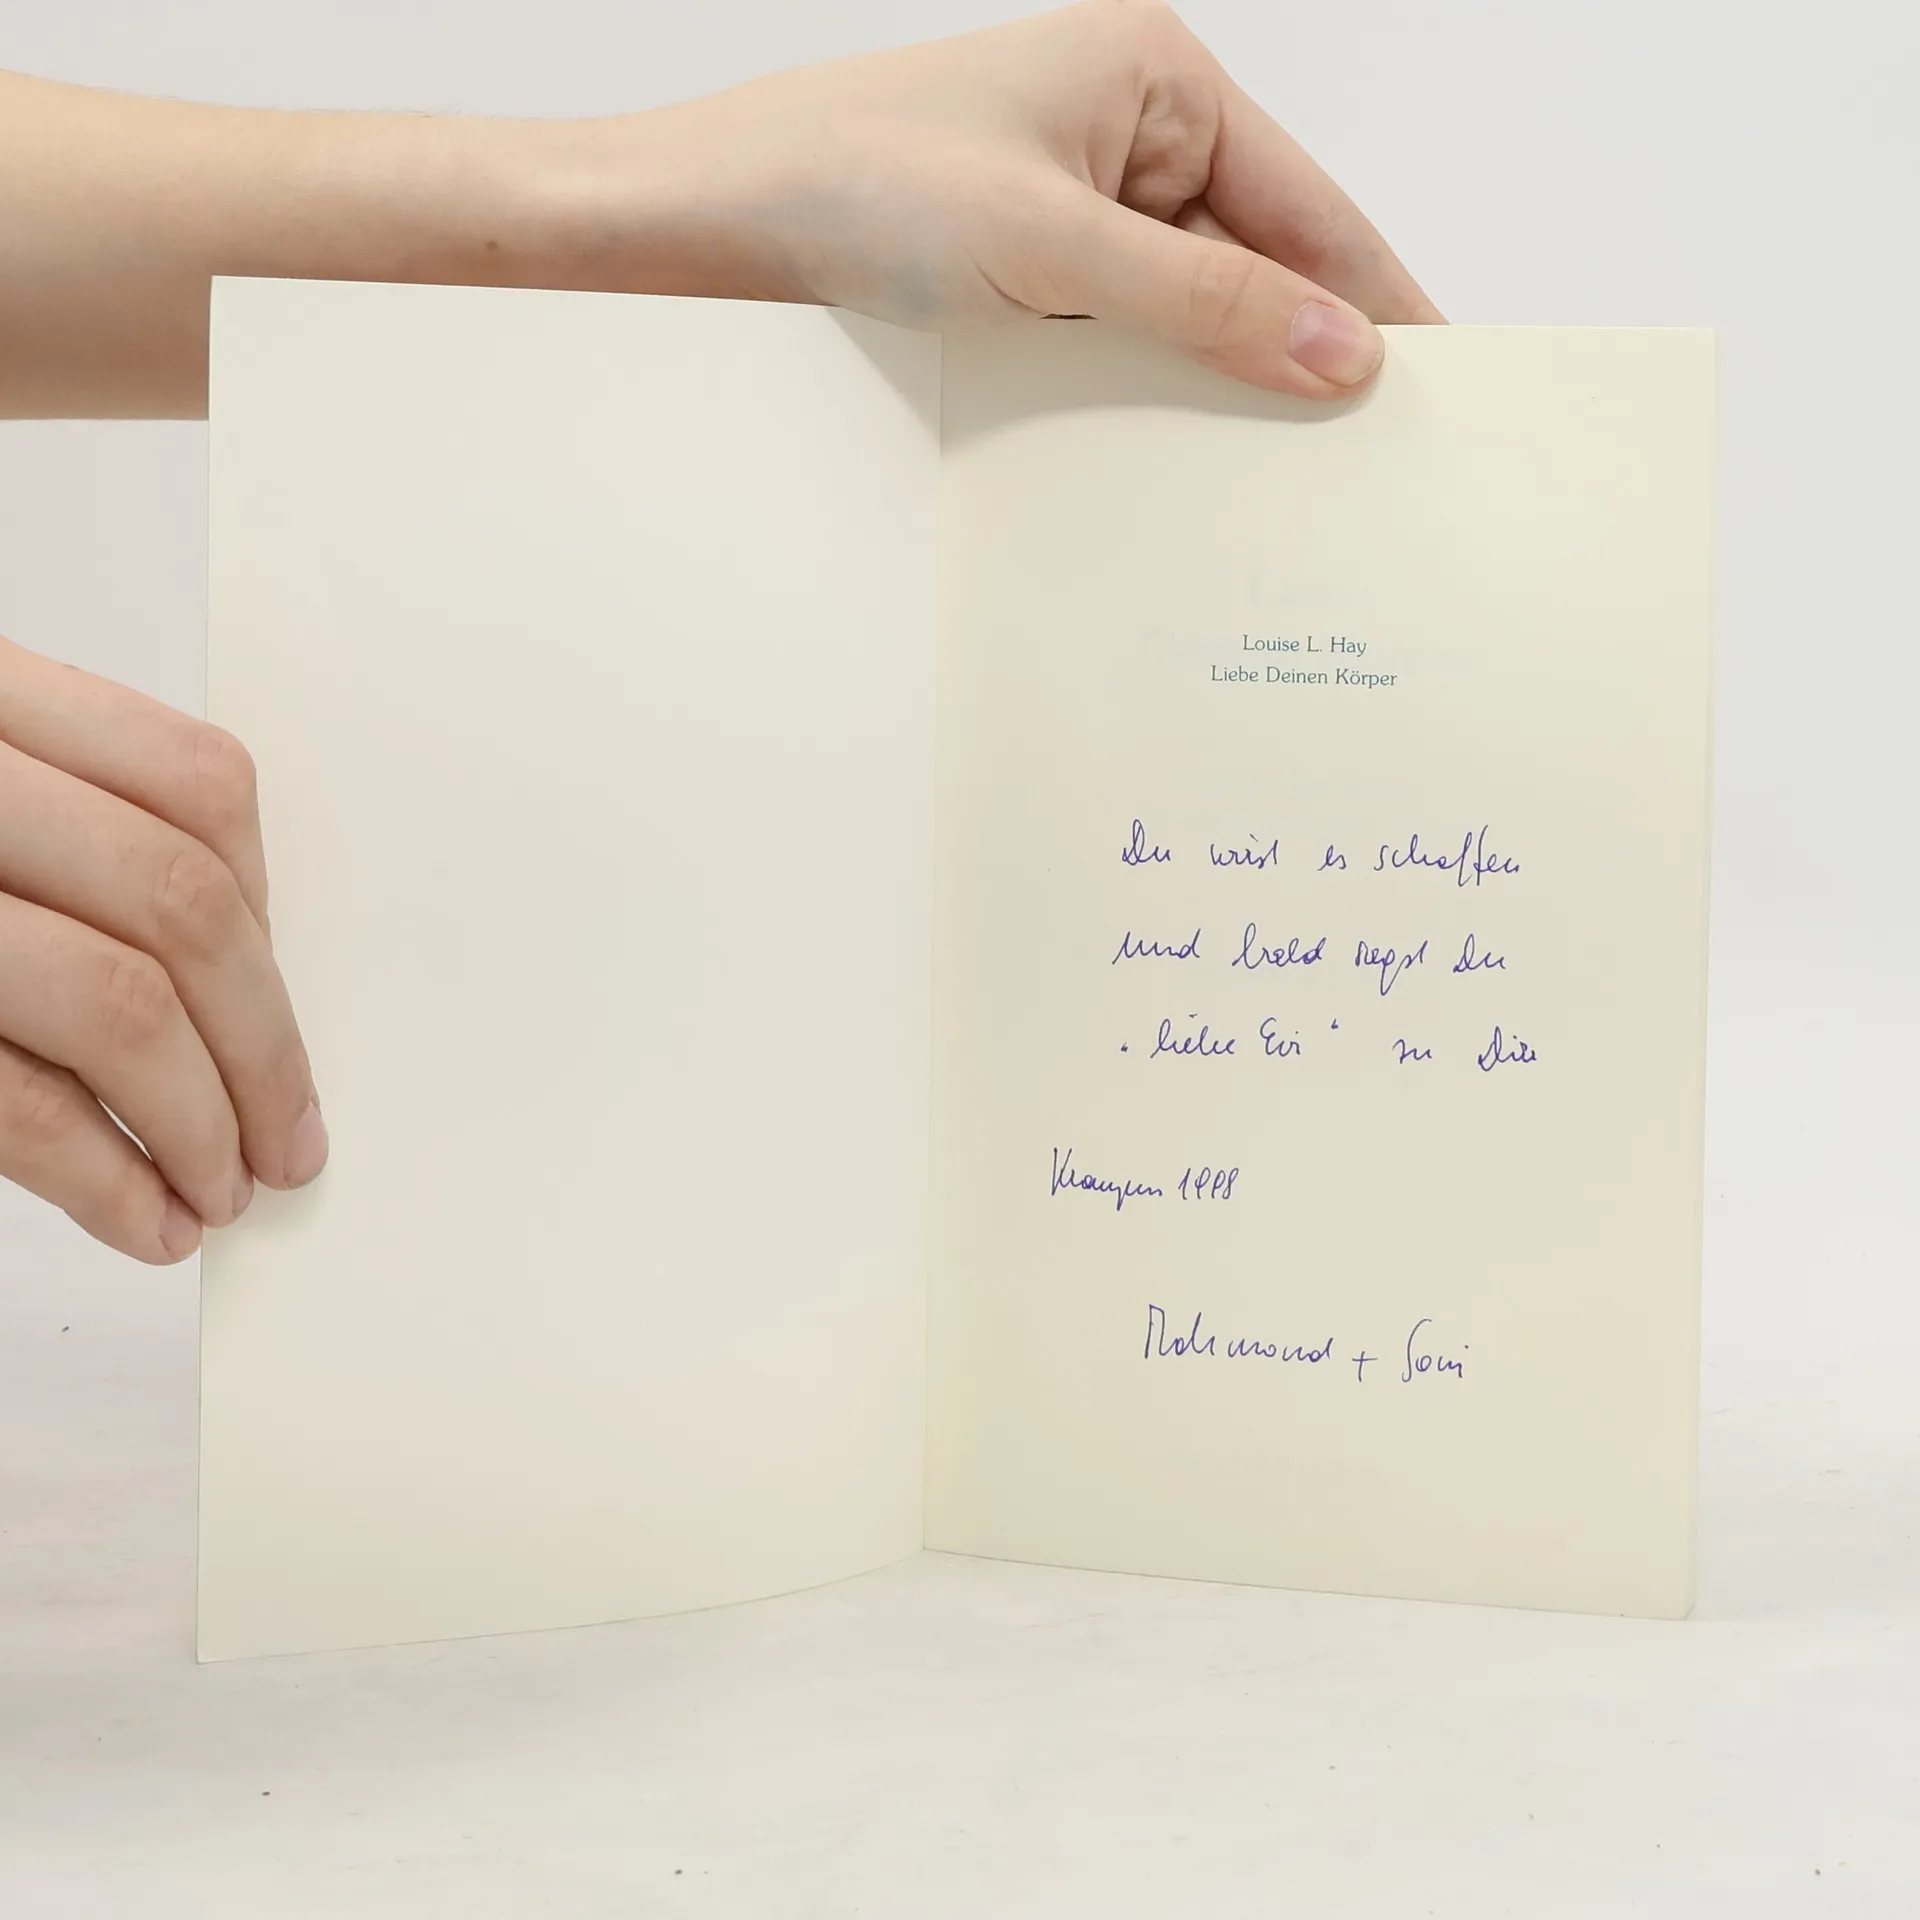 Louise L. Hay
Liebe Deinen Körper
Du wirst es schaffen
und bald sagst Du
"liebe Evi" zu Dir
1998
+